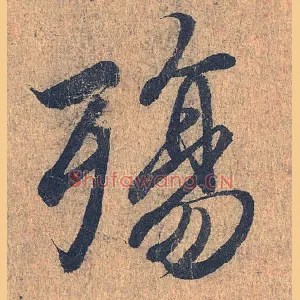 殤
Shufawang.CN